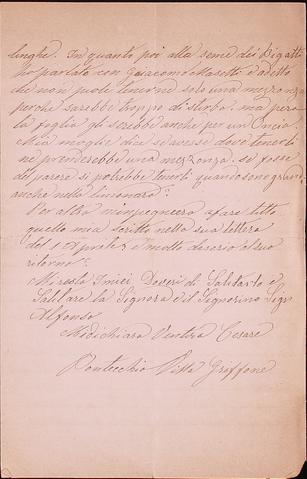 lunghe. In quanto poi alla seme dei Bigatti
ho parlato con Giacomo Masetti e a detto
che non puole tenerne solo una mezzonza
perche sarebbe troppo disterbo. ma pero
la foglia gli serebbe anche per un Oncio
Mia moglie dice se avesse dove tenerli
ne prenderebbe una mezzonza. si fosse
del parere si potrebbe tenerli quando sono grandi
anche nella limonara.
Per altro m'inpegnero a fare tutto
quello mia scritto nella sua lettera
del 1 Aprile e molto deserio il suo
ritorno.
Mi resta I miei Doveri di Salutarlo e
Salutare la Signora e il Signorino Sigr
Alfonso
Medichiaro Ventura Cesare
Pontecchio Villa Griffone